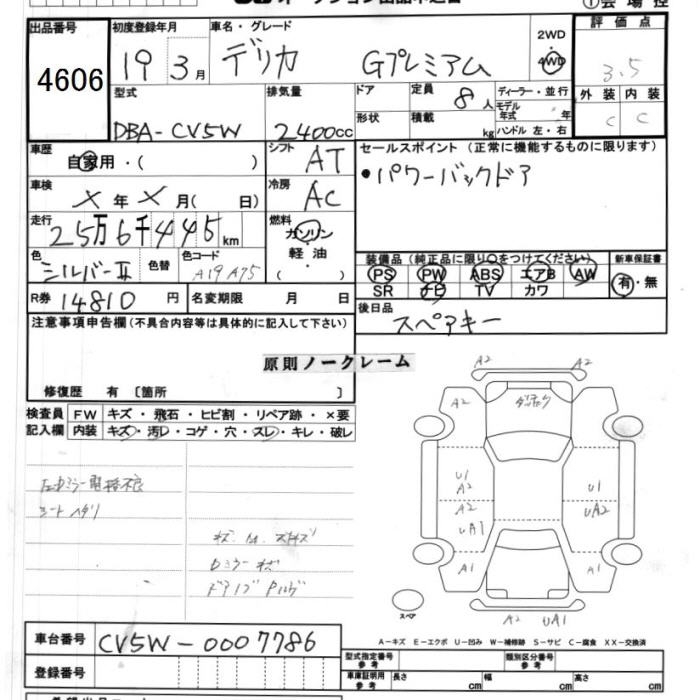 出品番号
4606
初度登録年月
19 3月
車名・グレード
デリカ Gプレミアム
2WD
4WD
評価点
3.5
外装 内装
C C
型式
DBA-CV5W
排気量
2400cc
ドア
形状
定員 8人
積載 kg
ディーラー・並行
モデル年式 年
ハンドル 左・右
車歴
自家用・( )
シフト
AT
セールスポイント(正常に機能するものに限ります)
・パワーバックドア
車検
X年X月( 日)
冷房
AC
走行
25万6千445km
燃料
ガソリン
軽油
( )
色
シルバーII
色替
色コード
A19 A75
装備品(純正品に限り○をつけてください)
PS PW ABS エアB AW
SR ナビ TV カワ
新車保証書
有・無
R券 14810円
名変期限 月 日
後日品
スペアキー
注意事項申告欄(不具合内容等は具体的に記入して下さい)
原則ノークレーム
修復歴 有 〔箇所 〕
検査員記入欄
FW キズ・飛石・ヒビ割・リペア跡・×要
内装 キズ・汚レ・コゲ・穴・スレ・キレ・破レ
シートヘタリ
A2 A2
A2 A2
U1
A2
A2
UA1
U1
UA2
A1 A1
スペア
A2 UA1
A-キズ E-エクボ U-凹み W-補修跡 S-サビ C-腐食 XX-交換済
車台番号
CV5W-0007786
登録番号
型式指定番号 参考
類別区分番号 参考
車庫証明用 参考
長さ cm 幅 cm 高さ cm